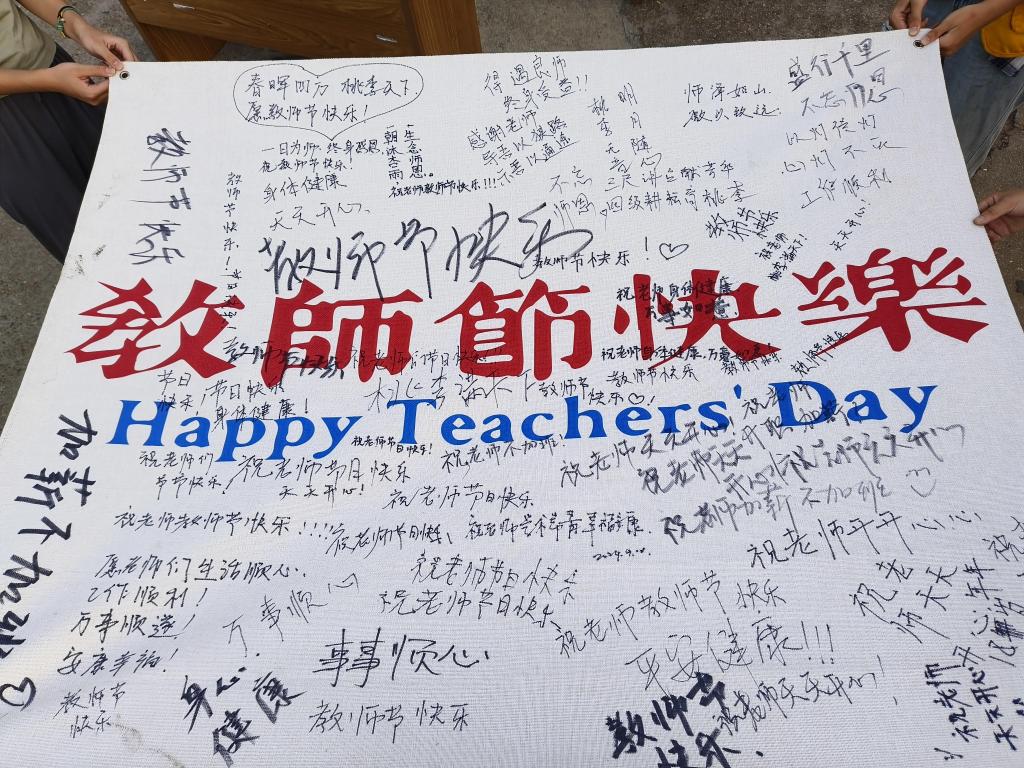 春晖四方 桃李天下
愿教师节快乐！
得遇良师
终身受益!!
感谢老师
导悉以歧路
示悉以通途
桃李
明月
无随
师泽如山，
微以致远。
盛行千里
不忘师恩
以灯传灯
心灯不灭
工作顺利
天天开心！
教师节快乐
教师节快乐！
一日为师，终身感恩
祝教师节快乐！
身体健康
天天开心、
朝沐杏雨
一生念师恩
祝教师教师节快乐!!!
不忘师恩
三尺讲台献青年
四级耕耘育桃李
教师节快乐
教师节快乐！♡
教师节快乐
祝老师身体健康
万事如意
教師節快樂
教师节快乐
祝老师们节日快乐!!
祝老师身体健康,万事如意！
节日快乐
节日快乐
身体健康！
桃李满天下
教师节快乐♡！
教师节快乐
Happy Teachers' Day
祝老师节日快乐！
祝老师们
节节快乐！
祝老师节日快乐
天天开心！
祝老师不加班！
祝老师天天开心！
祝老师天天开心
祝老师加薪不加班
祝老师节日快乐
祝老师教师节快乐!!!!
祝老师节日快乐、
2024.9.10
祝老师开开心心
加薪不加班♡
愿老师们生活顺心、
工作顺利！
万事顺遂！
安康幸福！
教师节
快乐
万事顺心
祝老师节日快乐
祝老师节日快乐、
祝老师教师节快乐
事事顺心
平安健康!!!
祝老师天天开心！
身心健康
教师节快乐
教师节
快乐.
祝老师
天天
祝老师
天天开心